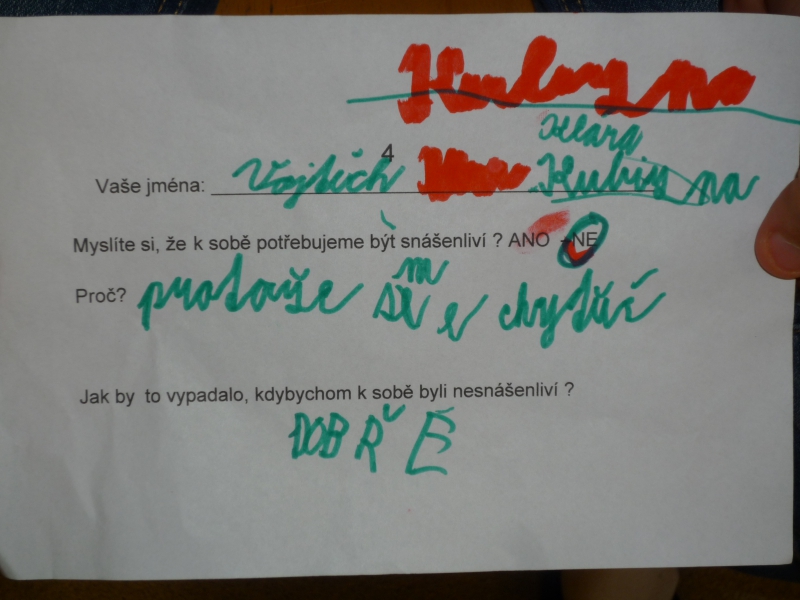 Klára
4
Vaše jména: Vojtěch
Myslíte si, že k sobě potřebujeme být snášenliví ? ANO - NE
Proč? protože sme chytří
Jak by to vypadalo, kdybychom k sobě byli nesnášenliví ?
DOBŘE